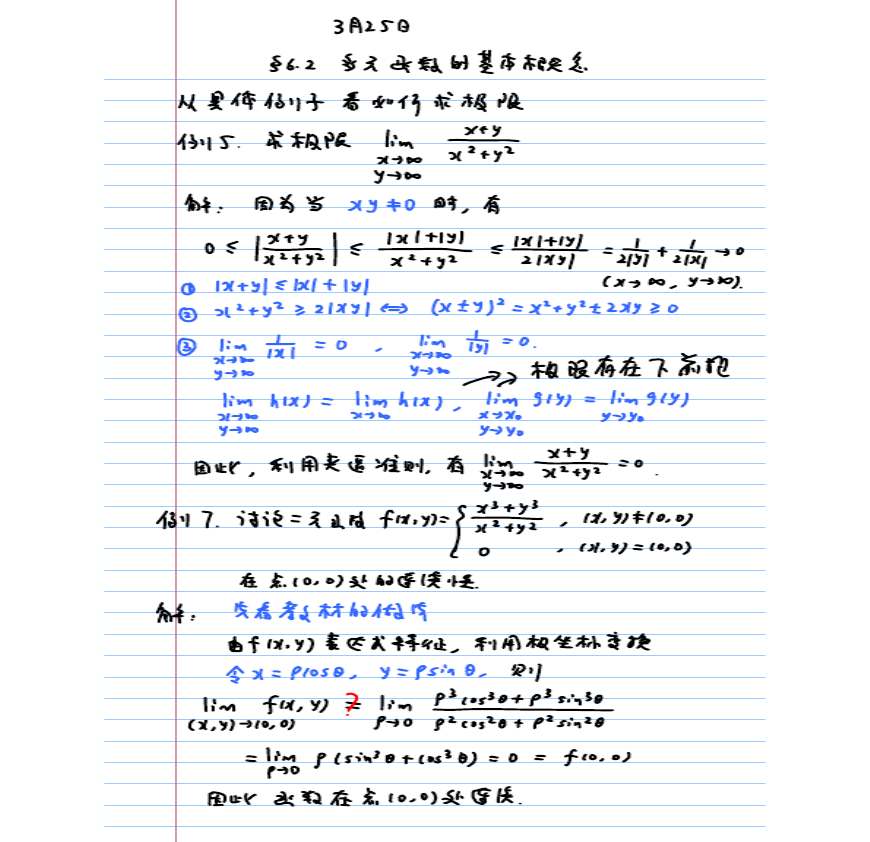 3月25日
§6.2 多元函数的基本概念
从具体例子看如何求极限
例5. 求极限 lim x→∞ y→∞ (x+y)/(x²+y²)
解: 因为当 xy≠0 时, 有
0 ≤ |(x+y)/(x²+y²)| ≤ (|x|+|y|)/(x²+y²) ≤ (|x|+|y|)/(2|xy|) = 1/(2|y|) + 1/(2|x|) → 0
(x→∞, y→∞).
① |x+y| ≤ |x|+|y|
② x²+y² ≥ 2|xy| ⟺ (x±y)² = x²+y²±2xy ≥ 0
③ lim x→∞ y→∞ 1/|x| = 0 , lim x→∞ y→∞ 1/|y| = 0.
→> 极限存在下前提
lim x→∞ y→∞ h(x) = lim x→∞ h(x), lim x→x₀ y→y₀ g(y) = lim y→y₀ g(y)
因此, 利用夹逼准则, 有 lim x→∞ y→∞ (x+y)/(x²+y²) = 0 .
例7. 讨论二元函数 f(x,y) = { (x³+y³)/(x²+y²) , (x,y)≠(0,0)
0 , (x,y)=(0,0)
在点(0,0)处的连续性.
解: 先看教材的
由f(x,y)表达式特征, 利用极坐标变换
令 x=ρcosθ, y=ρsinθ, 则
lim (x,y)→(0,0) f(x,y) =? lim ρ→0 (ρ³cos³θ+ρ³sin³θ)/(ρ²cos²θ+ρ²sin²θ)
= lim ρ→0 ρ(sin³θ+cos³θ) = 0 = f(0,0)
因此函数在点(0,0)处连续.